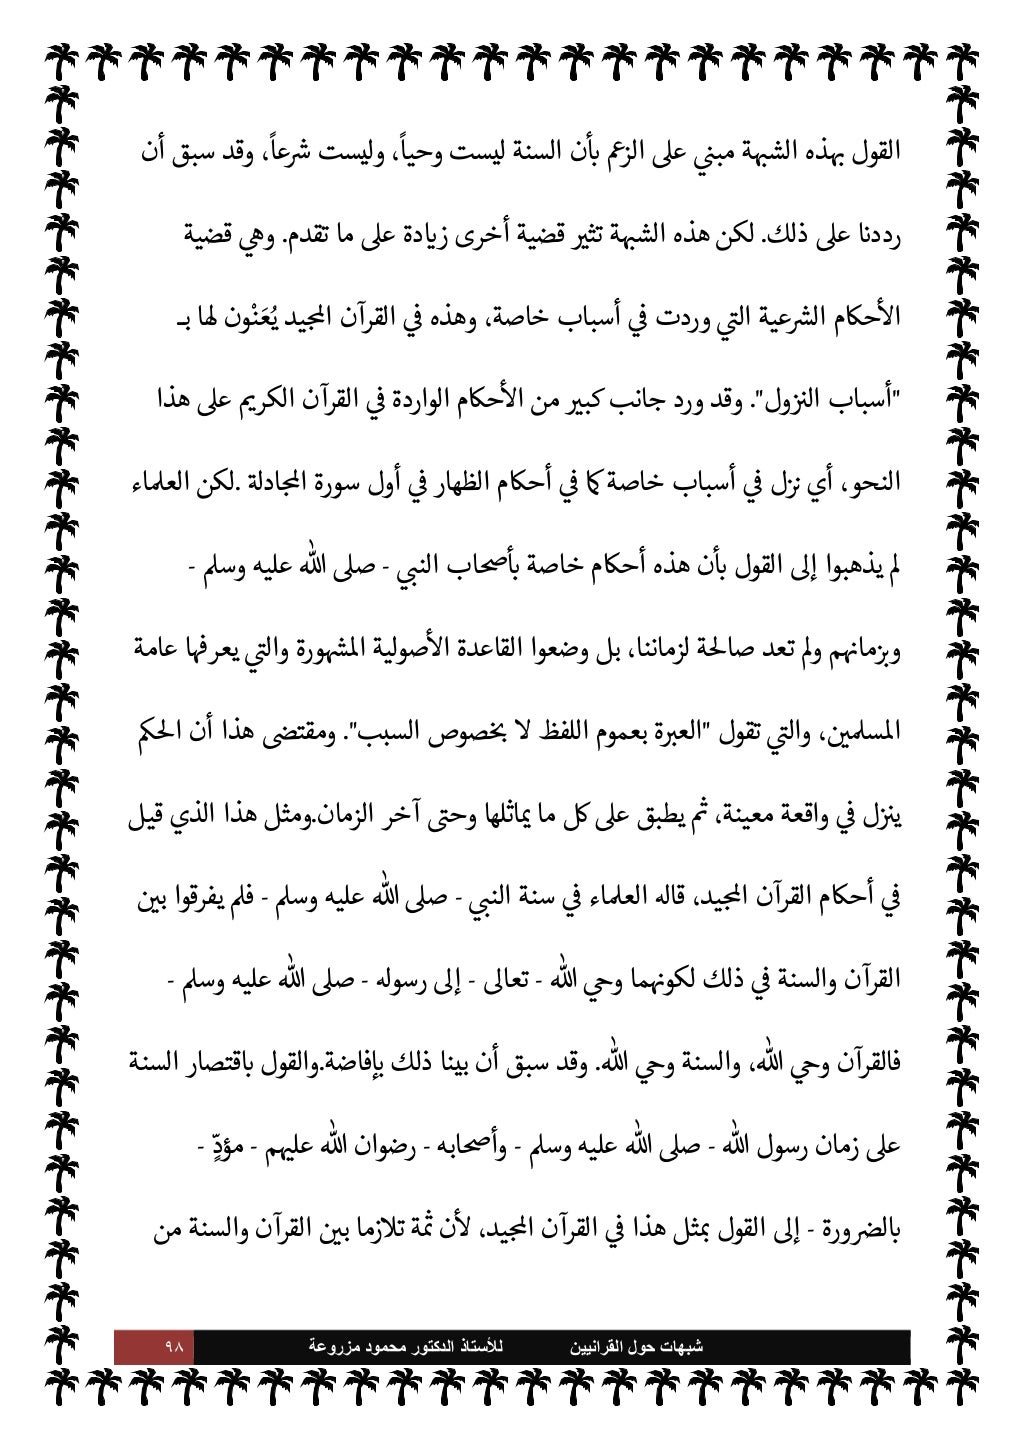 القول بهذه الشبهة مبني على الزعم بأن السنة ليست وحياً، وليست شرعاً، وقد سبق أن
رددنا على ذلك. لكن هذه الشبهة تثير قضية أخرى زيادة على ما تقدم. وهي قضية
الأحكام الشرعية التي وردت في أسباب خاصة، وهذه في القرآن المجيد يُعَنْون لها بـ
"أسباب النزول". وقد ورد جانب كبير من الأحكام الواردة في القرآن الكريم على هذا
النحو، أي نزل في أسباب خاصة كما في أحكام الظهار في أول سورة المجادلة .لكن العلماء
لم يذهبوا إلى القول بأن هذه أحكام خاصة بأصحاب النبي - صلى الله عليه وسلم -
وبزمانهم ولم تعد صالحة لزماننا، بل وضعوا القاعدة الأصولية المشهورة والتي يعرفها عامة
المسلمين، والتي تقول "العبرة بعموم اللفظ لا بخصوص السبب". ومقتضى هذا أن الحكم
ينزل في واقعة معينة، ثم يطبق على كل ما يماثلها وحتى آخر الزمان.ومثل هذا الذي قيل
في أحكام القرآن المجيد، قاله العلماء في سنة النبي - صلى الله عليه وسلم - فلم يفرقوا بين
القرآن والسنة في ذلك لكونهما وحي الله - تعالى - إلى رسوله - صلى الله عليه وسلم -
فالقرآن وحي الله، والسنة وحي الله. وقد سبق أن بينا ذلك بإفاضة.والقول باقتصار السنة
على زمان رسول الله - صلى الله عليه وسلم - وأصحابه - رضوان الله عليهم - مؤدٍّ -
بالضرورة - إلى القول بمثل هذا في القرآن المجيد، لأن ثمة تلازما بين القرآن والسنة من
شبهات حول القرانيين للأستاذ الدكتور محمود مزروعة ٩٨